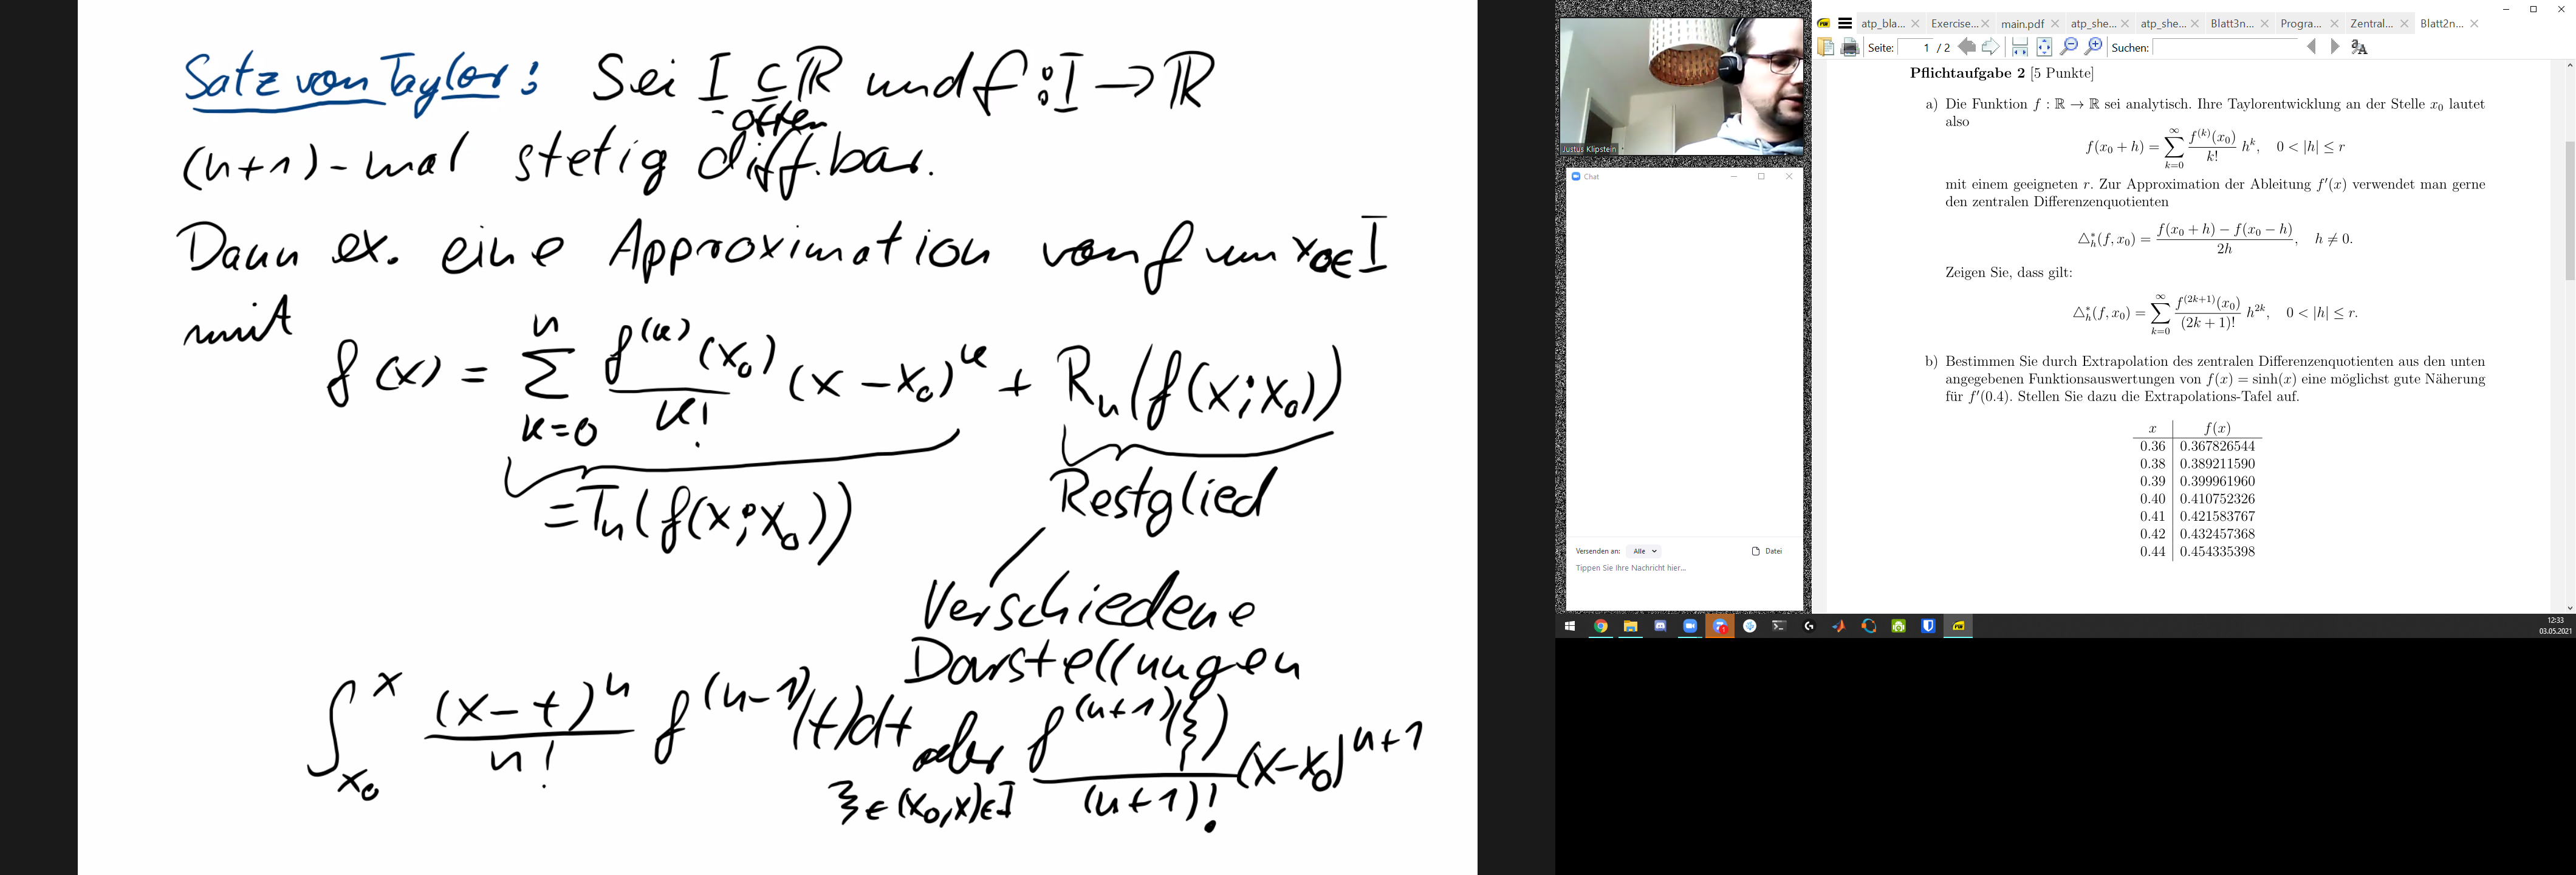 Satz von Taylor: Sei I ⊆ ℝ und f: I → ℝ
offen
(n+1)-mal stetig diff.bar.
Dann ex. eine Approximation von f um x₀ ∈ I
mit
f(x) = ∑_{k=0}^{n} f^{(k)}(x₀)/k! (x - x₀)^k + R_n(f(x; x₀))
= T_n(f(x; x₀))
Restglied
Verschiedene
Darstellungen
∫_{x₀}^{x} (x-t)^n/n! f^{(n-1)}(t)dt oder f^{(n+1)}(ξ)/(n+1)! (x-x₀)^{n+1}
ξ ∈ (x₀,x) ∈ I
Justus Klipstein
Chat
Versenden an: Alle Datei
Tippen Sie Ihre Nachricht hier...
atp_bla... Exercise... main.pdf atp_she... atp_she... Blatt3n... Progra... Zentral... Blatt2n...
Seite: 1 / 2 Suchen:
Pflichtaufgabe 2 [5 Punkte]
a) Die Funktion f : ℝ → ℝ sei analytisch. Ihre Taylorentwicklung an der Stelle x₀ lautet
also
f(x₀ + h) = ∑_{k=0}^{∞} f^{(k)}(x₀)/k! h^k, 0 < |h| ≤ r
mit einem geeigneten r. Zur Approximation der Ableitung f′(x) verwendet man gerne
den zentralen Differenzenquotienten
△*_h(f, x₀) = (f(x₀ + h) − f(x₀ − h))/2h, h ≠ 0.
Zeigen Sie, dass gilt:
△*_h(f, x₀) = ∑_{k=0}^{∞} f^{(2k+1)}(x₀)/(2k + 1)! h^{2k}, 0 < |h| ≤ r.
b) Bestimmen Sie durch Extrapolation des zentralen Differenzenquotienten aus den unten
angegebenen Funktionsauswertungen von f(x) = sinh(x) eine möglichst gute Näherung
für f′(0.4). Stellen Sie dazu die Extrapolations-Tafel auf.
x f(x)
0.36 0.367826544
0.38 0.389211590
0.39 0.399961960
0.40 0.410752326
0.41 0.421583767
0.42 0.432457368
0.44 0.454335398
12:33
03.05.2021